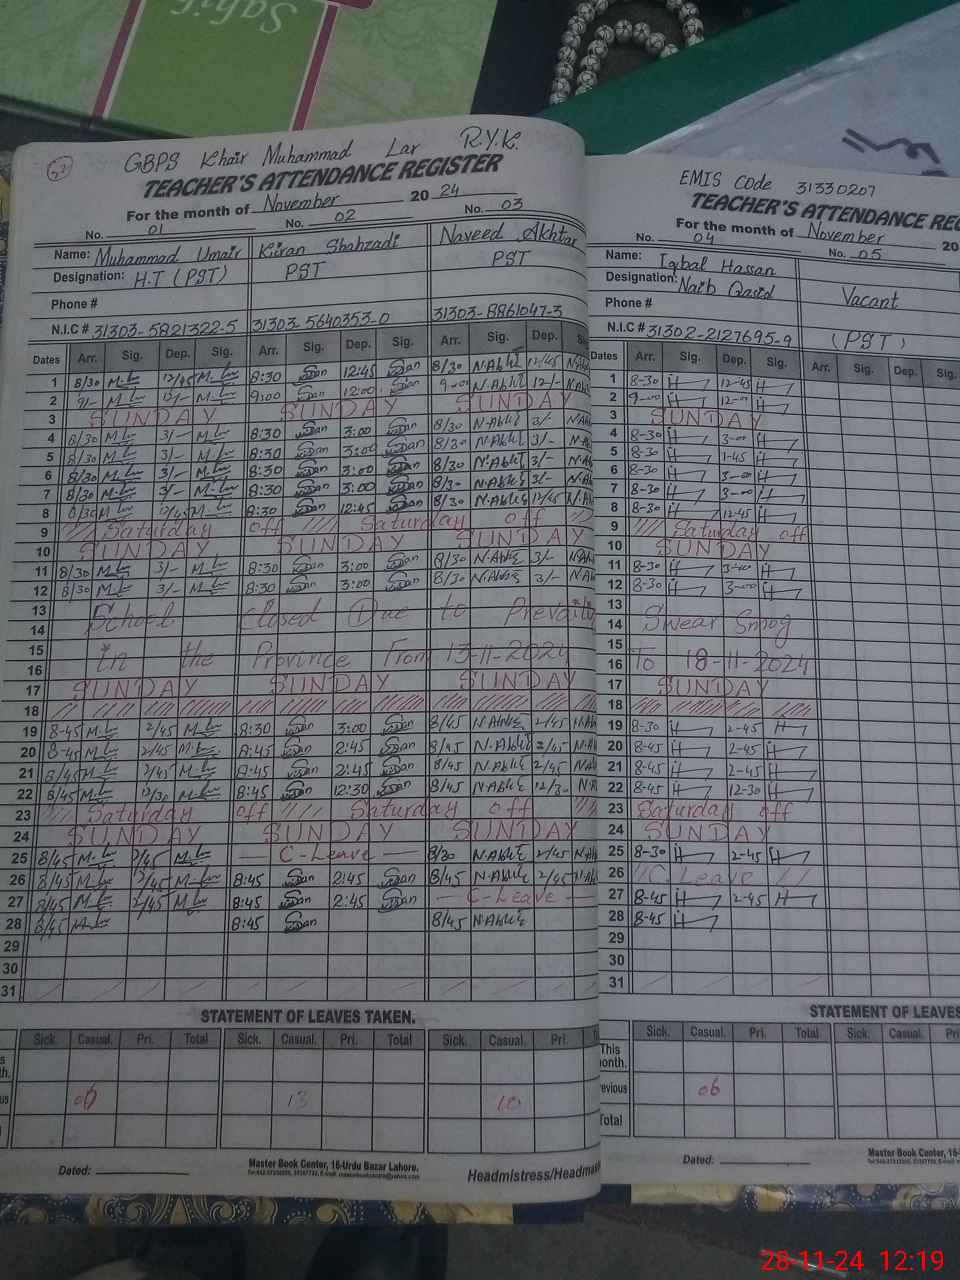 Sahib
GBPS Khair Muhammad Lar R.Y.K.
TEACHER'S ATTENDANCE REGISTER
For the month of November 2024
No. 01 No. 02 No. 03
Name: Muhammad Umair Kiran Shahzadi Naveed Akhtar
Designation: H.T (PST) PST PST
Phone #
N.I.C # 31303-5821322-5 31303-5640353-0 31303-8861047-3
Dates Arr. Sig. Dep. Sig. Arr. Sig. Dep. Sig. Arr. Sig. Dep.
1 8/30 12/45 8:30 12:45 8/30 12/45
2 9/- 12/- 9:00 12:00 9-00 12/-
3 SUNDAY SUNDAY SUNDAY
4 8/30 3/- 8:30 3:00 8/30 3/-
5 8/30 3/- 8:30 3:00 8/30 3/-
6 8/30 3/- 8:30 3:00 8/30 3/-
7 8/30 3/- 8:30 3:00 8/30 3/-
8 8/30 12/45 8:30 12:45 8/30 12/45
9 Saturday off Saturday off
10 SUNDAY SUNDAY SUNDAY
11 8/30 3/- 8:30 3:00 8/30 3/-
12 8/30 3/- 8:30 3:00 8/30 3/-
13
14 School closed Due to
15
16 in the Province From 13-11-2024
17 SUNDAY SUNDAY SUNDAY
18
19 8-45 2/45 8:30 3:00 8/45 2/45
20 8-45 2/45 8:45 2:45 8/45 2/45
21 8/45 2/45 8:45 2:45 8/45 2/45
22 8/45 12/30 8:45 12:30 8/45 12/30
23 Saturday off Saturday off
24 SUNDAY SUNDAY SUNDAY
25 8/45 2/45 C-Leave 8/30 2/45
26 8/45 2/45 8:45 2:45 8/45 2/45
27 8/45 2/45 8:45 2:45 C-Leave
28 8/45 8:45 8/45
29
30
31
STATEMENT OF LEAVES TAKEN.
Sick. Casual. Pri. Total Sick. Casual. Pri. Total Sick. Casual. Pri.
06 13 10
Dated:
Master Book Center, 16-Urdu Bazar Lahore.
Headmistress/Headmas
EMIS Code 31330207
TEACHER'S ATTENDANCE REG
For the month of November 20
No. 04 No. 05
Name: Iqbal Hassan
Designation: Naib Qasid Vacant
Phone #
N.I.C # 31302-2127695-9 (PST)
Dates Arr. Sig. Dep. Sig. Arr. Sig. Dep. Sig.
1 8-30 12-45
2 9-00 12-00
3 SUNDAY
4 8-30 3-00
5 8-30 1-45
6 8-30 3-00
7 8-30 3-00
8 8-30 12-45
9 Saturday off
10 SUNDAY
11 8-30 3-00
12 8-30 3-00
13
14 Smog
15
16 To 18-11-2024
17 SUNDAY
18
19 8-30 2-45
20 8-45 2-45
21 8-45 2-45
22 8-45 12-30
23 Saturday off
24 SUNDAY
25 8-30 2-45
26 C-Leave
27 8-45 2-45
28 8-45
29
30
31
STATEMENT OF LEAVES
Sick. Casual. Pri. Total Sick. Casual. Pri
This
onth.
evious 06
Total
Dated:
Master Book Center, 16-
28-11-24 12:19